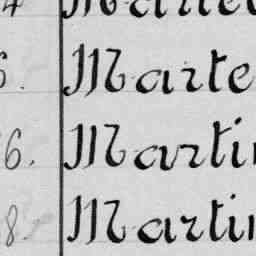 4 Marte
6. Marte
6. Martin
8. Martin